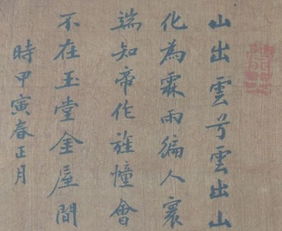 山出雲兮雲出山
化為霖雨徧人寰
端知帝作旌幢會
不在玉堂金屋間
時甲寅春正月